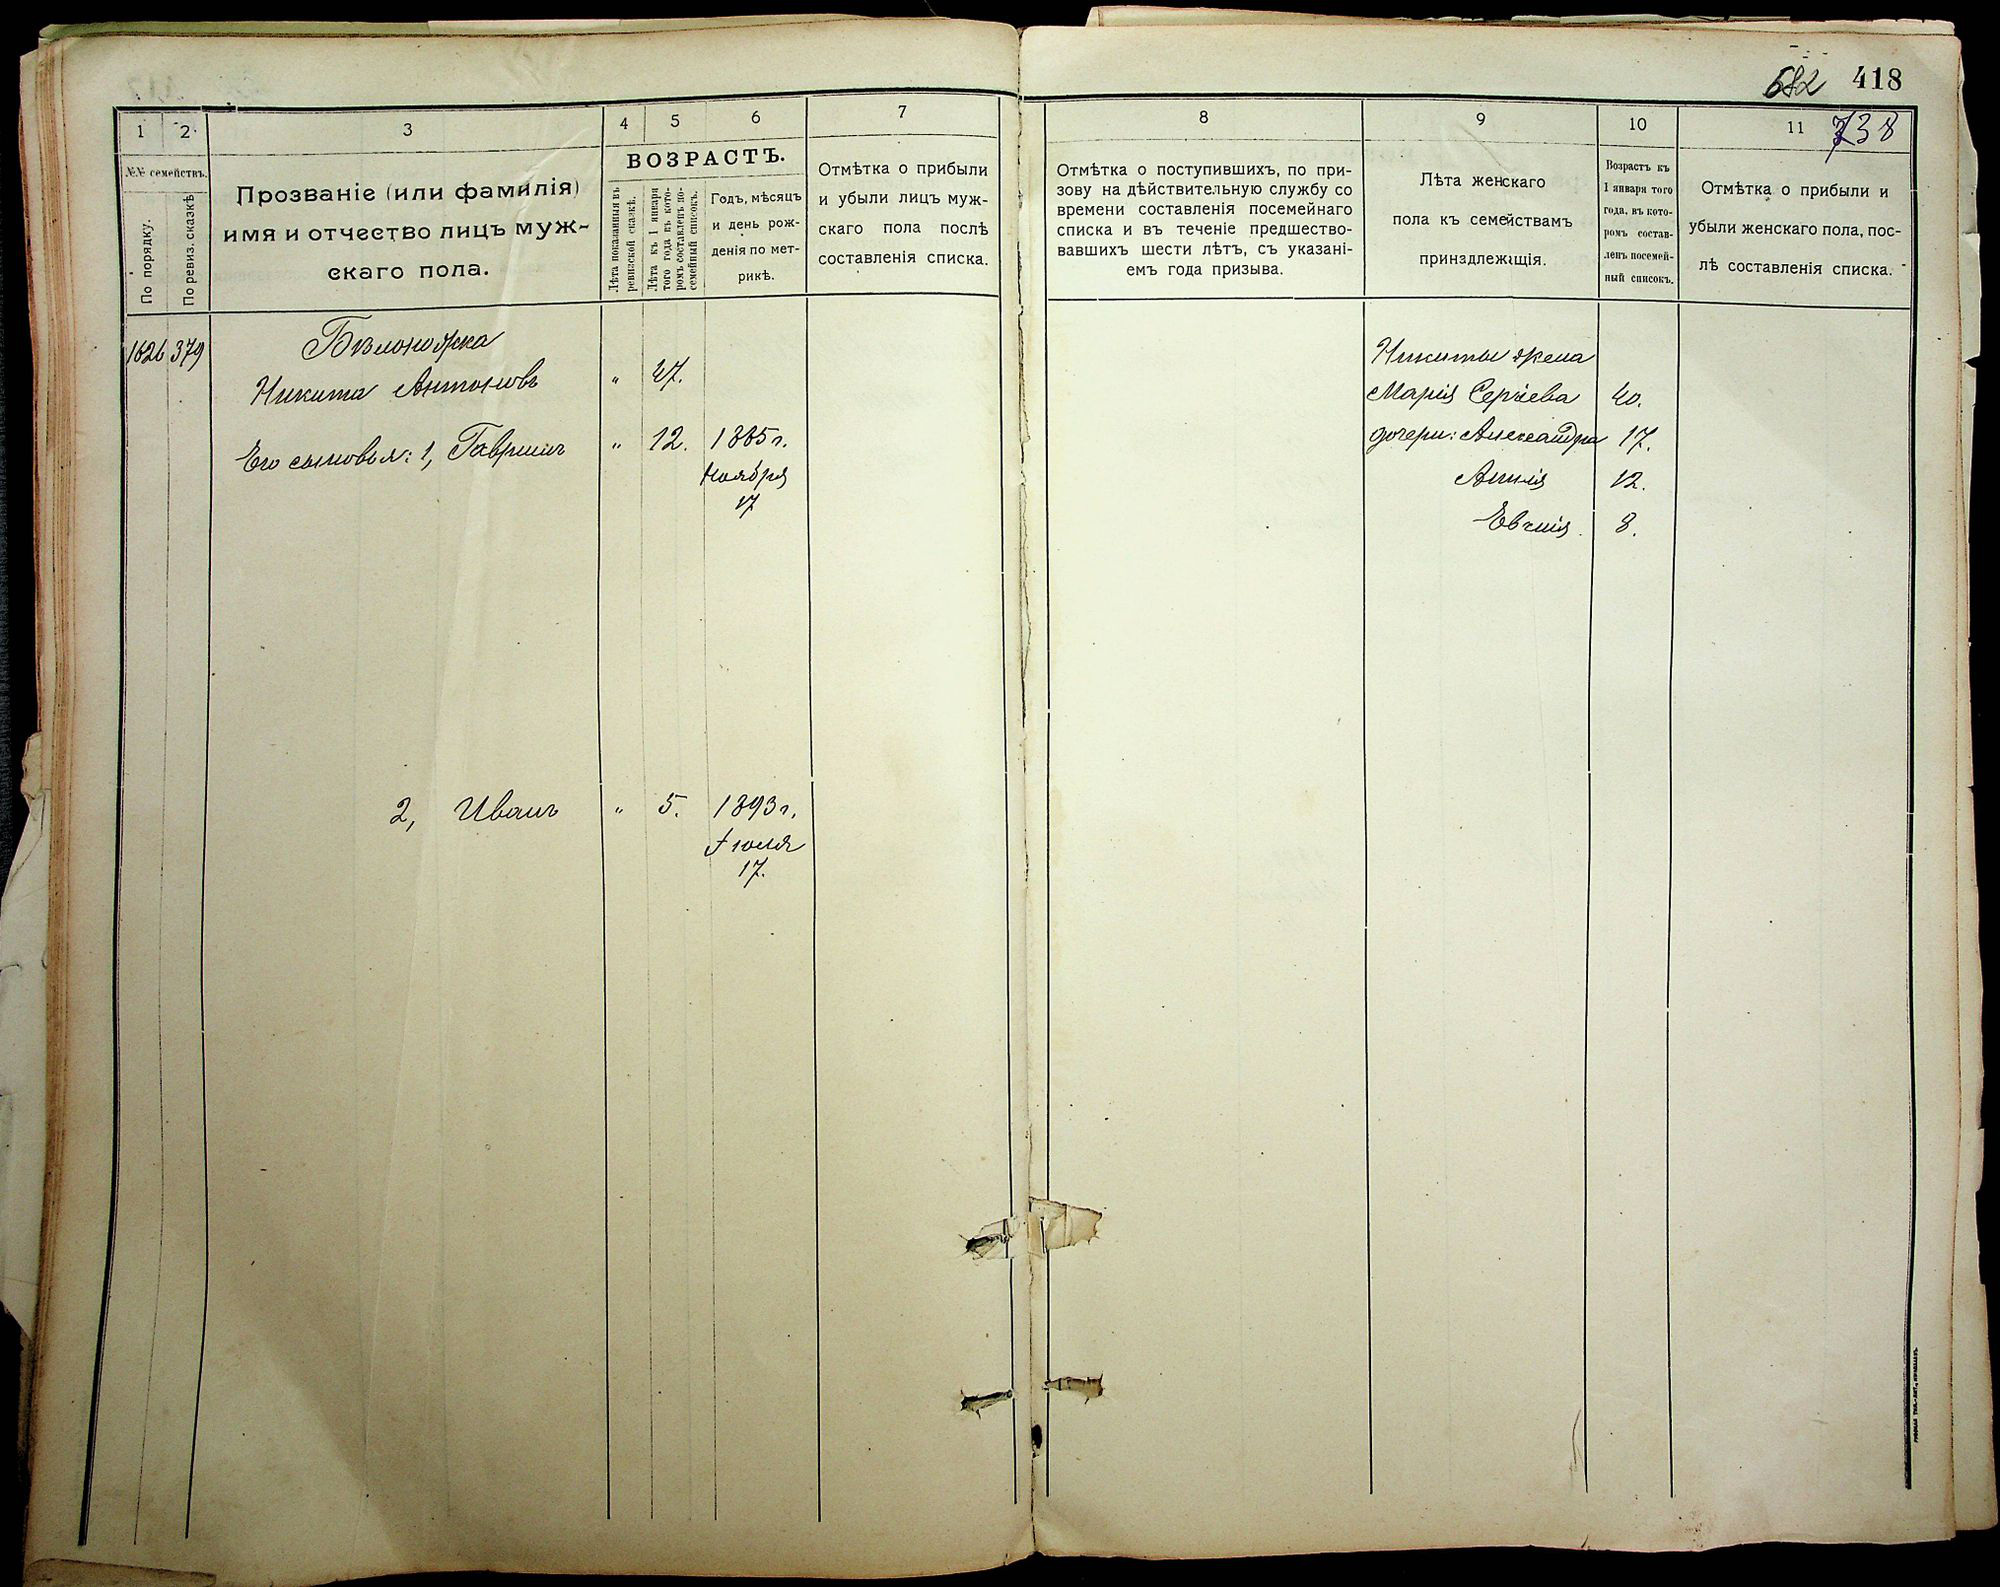 682 418
738
1
2
3
4
5
6
7
№№ семействъ.
По порядку.
По ревиз. сказкѣ
Прозваніе (или фамилія)
имя и отчество лицъ муж-
скаго пола.
ВОЗРАСТЪ.
Лѣта показанныя въ
ревизской сказкѣ.
Лѣта къ 1 января
того года въ кото-
ромъ составленъ по-
семейный списокъ.
Годъ, мѣсяцъ
и день рож-
денія по мет-
рикѣ.
Отмѣтка о прибыли
и убыли лицъ муж-
скаго пола послѣ
составленія списка.
8
9
10
11
Отмѣтка о поступившихъ, по при-
зову на дѣйствительную службу со
времени составленія посемейнаго
списка и въ теченіе предшество-
вавшихъ шести лѣтъ, съ указані-
емъ года призыва.
Лѣта женскаго
пола къ семействамъ
принадлежащія.
Возрастъ къ
1 января того
года, въ кото-
ромъ состав-
ленъ посемей-
ный списокъ.
Отмѣтка о прибыли и
убыли женскаго пола, пос-
лѣ составленія списка.
1626 379 Бѣлоножка
Никита Антоновъ " 47.
Его сыновья: 1, Гавріилъ " 12. 1885 г.
Ноября
17
2, Иванъ " 5. 1893 г.
Іюля
17.
Никиты жена
Марія Сергіева 40.
дочери: Александра 17.
12.
8.